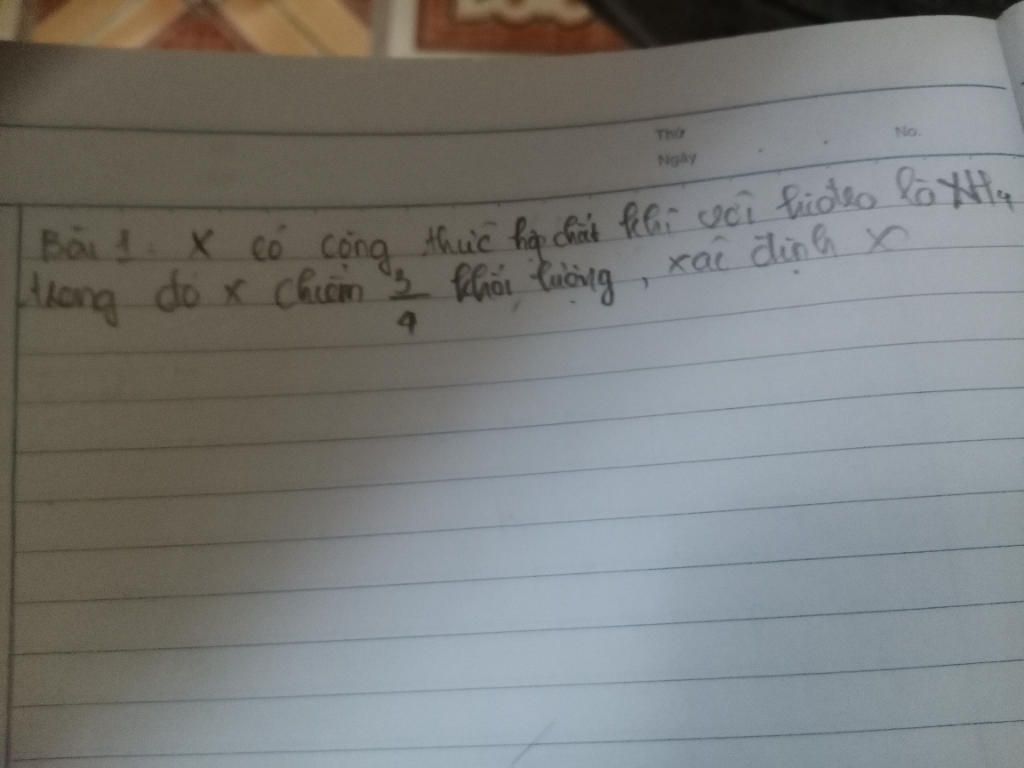 Thứ
No.
Ngày
Bài 1. X có công thức hợp chất khí với hiđro là XH4
trong đó X chiếm 3/4 khối lượng, xác định X